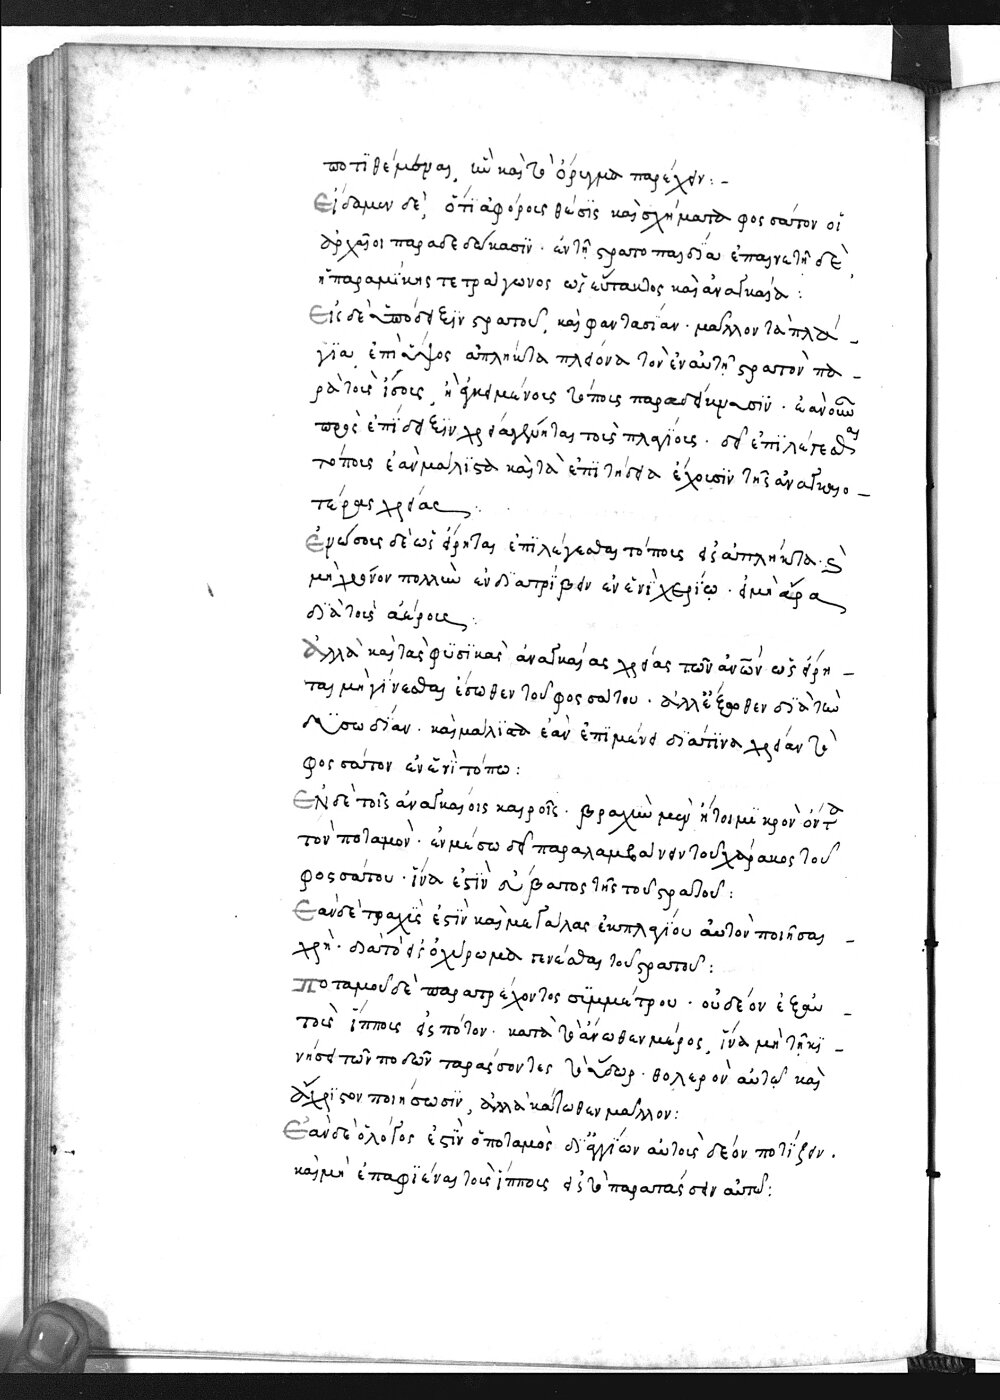 ποτιθέμεναι, ὧν καὶ τὸ ὄρυγμα παρέχειν:-
Εἴδαμεν δὲ, ὅτι διαφόροις θέσεις καὶ σχήματα φοσσάτον οἱ
ἀρχαῖοι παραδεδώκασιν· ἐν τῇ στρατοπαιδία ἐπαινετὴ δὲ
ἡ παραμήκης τετράγωνος ὡς εὔτακτος καὶ ἀναγκαία:
Εἰς δὲ ὑπόδειξιν στρατοῦ, καὶ φαντασίαν· μᾶλλον τὰ πλά-
γϊα, ἐπὶ ὕψος ἄπληκτα πλείονα τὸν ἐν αὐτῇ στρατὸν πα-
ρὰ τοῖς ἴσοις, ἢ ἐγκειμένοις τόποις παραδείκνυσιν· ἐὰν οὖν
πρὸς ἐπίδειξιν χρεία ζητῆται τοῖς πλαγίοις· δεῖ ἐπιλέγεσθαι
τόποις ἐὰν μάλιστα καὶ τὰ ἐπιτήδεια ἔχουσιν τῆς ἀναγκαιο-
τέρας χρείας:
Ἐρώσοις δὲ ὡς εἴρηται ἐπιλέγεσθαι τόποις εἰς ἄπληκτα· καὶ
μὴ χρόνον πολλὺν ἐνδιατρίβειν ἐν ἑνὶ χωρίῳ· εἰ μὴ ἄρα
διὰ τοὺς ἀέροις:
Ἀλλὰ καὶ τὰς φϋσϊκὰς ἀναγκαίας χρείας τῶν ἀνῶν ὡς εἴρη-
ται μὴ γίνεσθαι ἔσωθεν τοῦ φοσσάτου· ἀλλ' ἔξωθεν διὰ τὴν
δυσωδίαν· καὶ μάλιστα ἐὰν ἐπιμένει διά τινα χρείαν τὸ
φοσσάτον ἐν ἑνὶ τόπω:
Ἐν δὲ τοῖς ἀναγκαίοις καιροῖς· βραχὺν μὲν ἤτοι μικρὸν ὄντα
τὸν ποταμὸν· ἐν μέσω δεῖ παραλαμβάνειν τοῦ χάρακος τοῦ
φοσσάτου· ἵνα ἐστὶν εὔβατος τῆς τοῦ στρατοῦ:
Ἐὰν δὲ τραχὺς ἐστὶν καὶ μεγάλας ἐκ πλαγίου αὐτὸν ποιῆσαι-
χρὴ· διὰ τὸ εἰς ὀχύρωμα γενέσθαι τοῦ στρατοῦ:
Ποταμοῦ δὲ παρατρέχοντος συμμέτρου· οὐ δέον ἐξάγειν-
τοὺς ἵππους εἰς πότον· κατὰ τὸ ἄνωθεν μέρος, ἵνα μὴ τῇ κϊ-
νήσει τῶν ποδῶν ταράσσοντες τὸ ὕδωρ· θολερὸν αὐτῶ καὶ
ἄχρϊστον ποιήσωσϊν, ἀλλὰ κάτωθεν μᾶλλον:
Ἐὰν δὲ ὀλίγος ἐστὶν ὁ ποταμὸς δϊ' ἀγγίων αὐτοὺς δέον ποτίζειν.
καὶ μὴ ἐπαφϊέναι τοὺς ἵππους εἰς τὸ παραταράσσειν αὐτῶ: